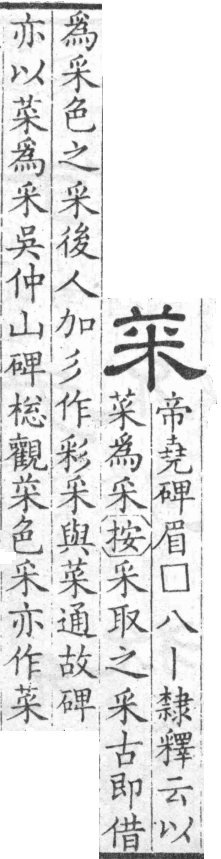 菜
帝堯碑眉□八丨隸釋云以
菜為采按采取之采古即借
為采色之采後人加彡作彩采與菜通故碑
亦以菜為采吳仲山碑㧾觀菜色采亦作菜